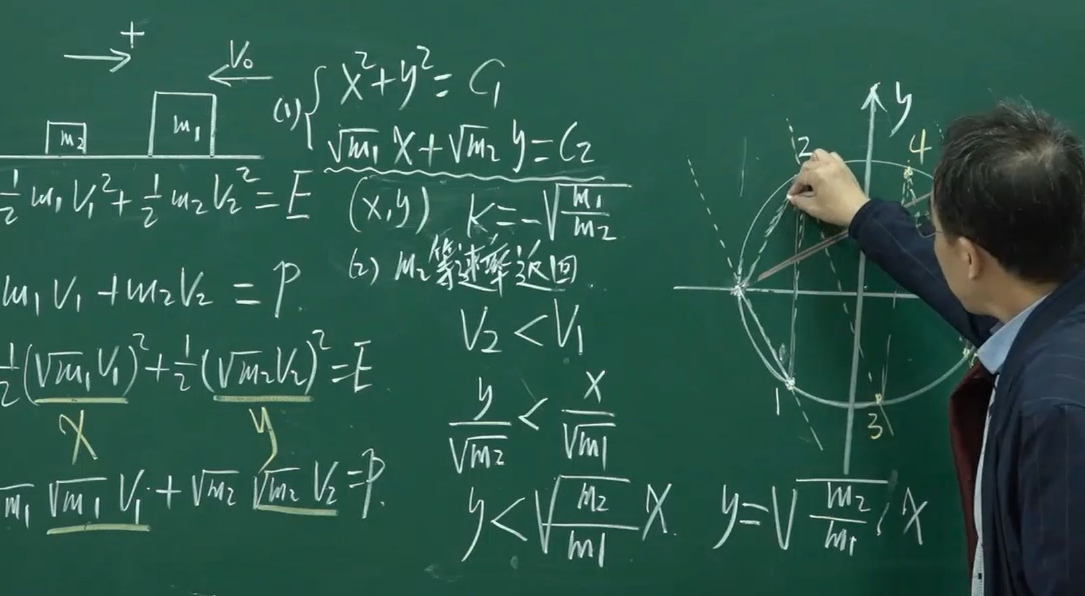 +
V₀
m₂
m₁
½ m₁V₁² + ½ m₂V₂² = E
m₁V₁ + m₂V₂ = P
½(√m₁V₁)² + ½(√m₂V₂)² = E
x y
√m₁ √m₁ V₁ + √m₂ √m₂ V₂ = P
(1) { x² + y² = C₁
√m₁ x + √m₂ y = C₂
(x,y) K = -√(m₁/m₂)
(2) m₂等速率返回
V₂ < V₁
y/√m₂ < x/√m₁
y < √(m₂/m₁) x
y = √(m₂/m₁) x
y
2
4
1
3